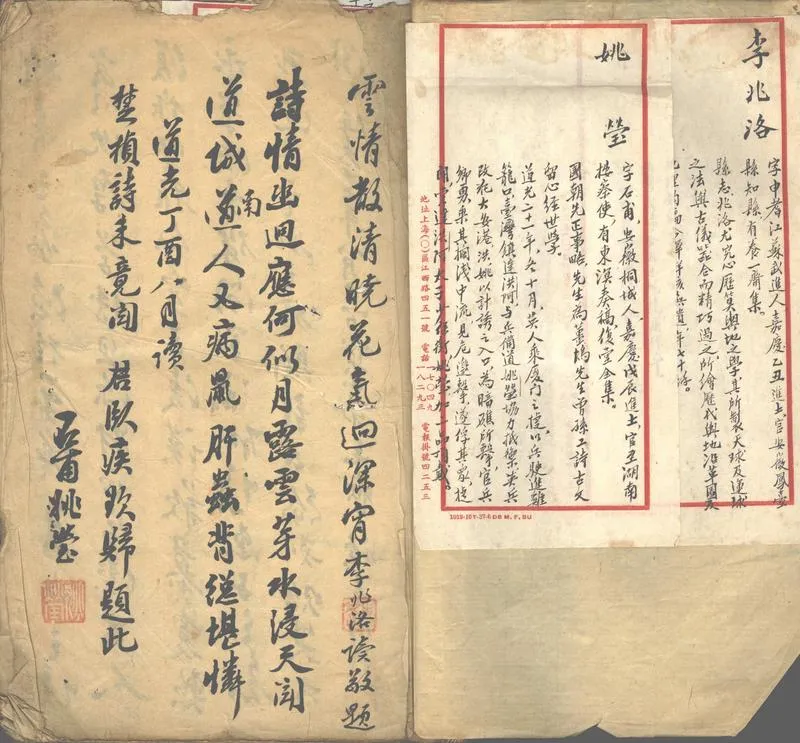 李兆洛
字申耆江蘇武進人嘉慶乙丑進士官安徽鳳臺
縣知縣有養一齋集。
縣志兆洛尤究心歷算輿地之學其所製天球及運球
之法與古儀器合而精巧過之所繪歷代輿地沿革圖
年七十
姚瑩
字石甫，安徽桐城人嘉慶戊辰進士，官至湖南
按察使，有東溟奏稿後雲全集。
國朝先正事略，先生為薑塢先生曾孫工詩古文
留心經世學，
道光二十一年，冬十月，英人乘廈門之捷，以兵艇進雞
籠口臺灣鎮達洪阿與兵備道姚瑩協力抵禦英兵
改犯大安港，洪姚以計誘之入口為暗礁所擊官兵
鄉勇乘其擱淺中流見危邀擊遂俘其眾捷
聞達洪阿太子少保銜姚瑩加二品頂戴。
地址上海(〇)區江西路四五一號 電話一七〇四九 一八二九三 電報掛號四二五三
雲情散清曉花氣迴深宵李兆洛讀敬題
詩情幽迥應何似月露雲芽水浸天聞
道城南道人又病鼠肝蟲臂總堪憐
道光丁酉八月讀
楚楨詩來竟聞 君臥疾歸題此
石甫姚瑩